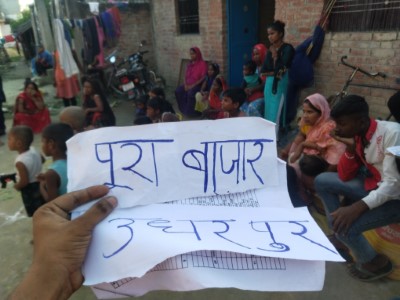 पूरा बाजार
उधरपुर